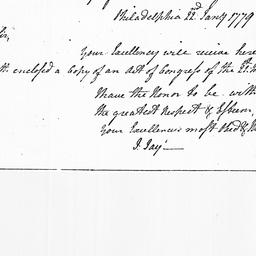 Philadelphia 22nd Jany 1779
Sir,
Your Excellency will receive here
enclosed a Copy of an Act of Congress of the 21st
I have the Honor to be with
the greatest Respect & Esteem,
Your Excellency's most Obed &
J. Jay